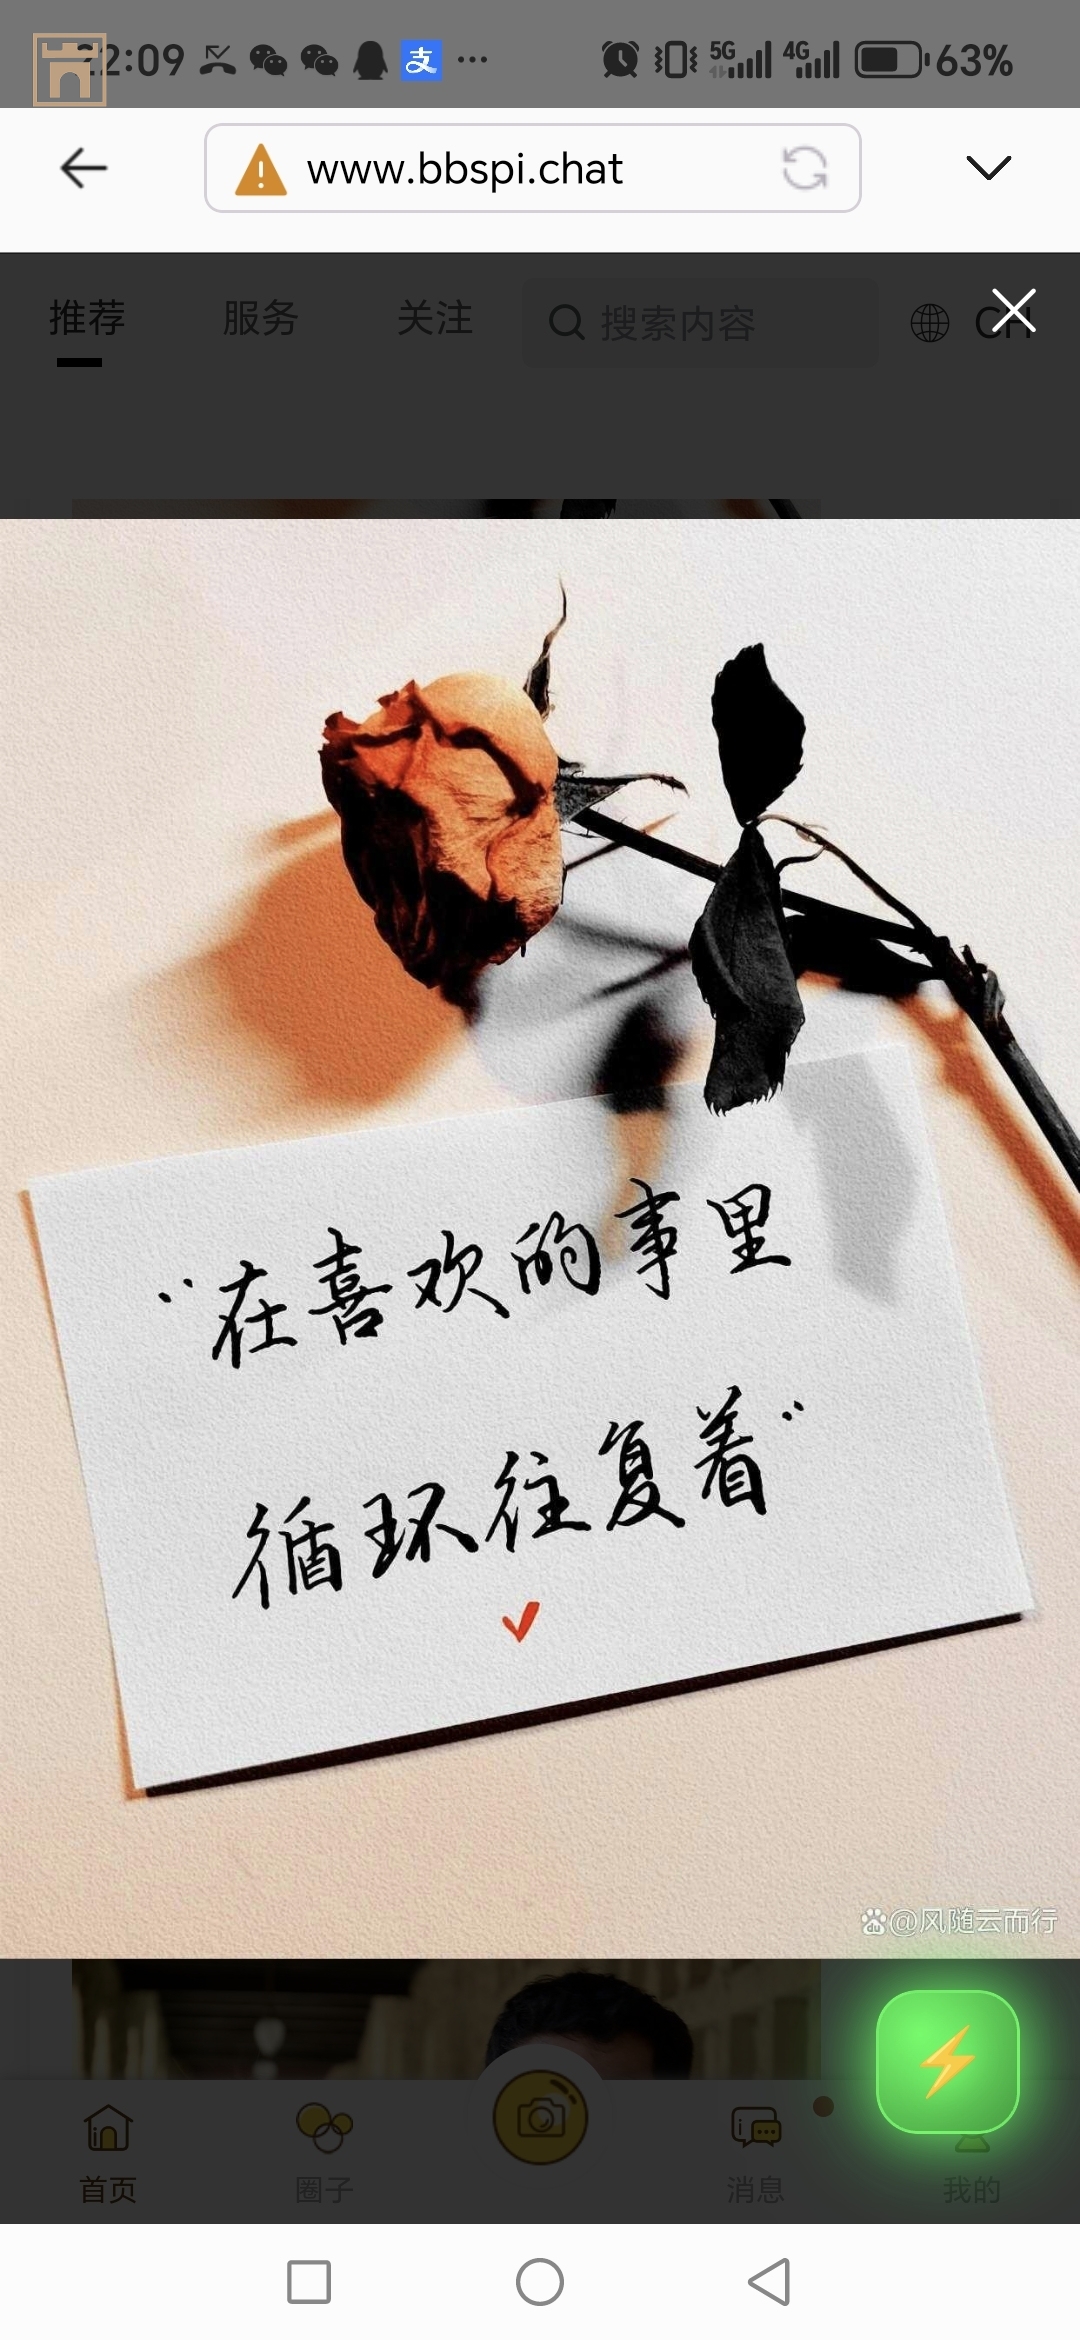 22:09
支
5G
4G
63%
www.bbspi.chat
推荐 服务 关注 搜索内容 CH
“在喜欢的事里
循环往复着”
du @风随云而行
首页 圈子 消息 我的